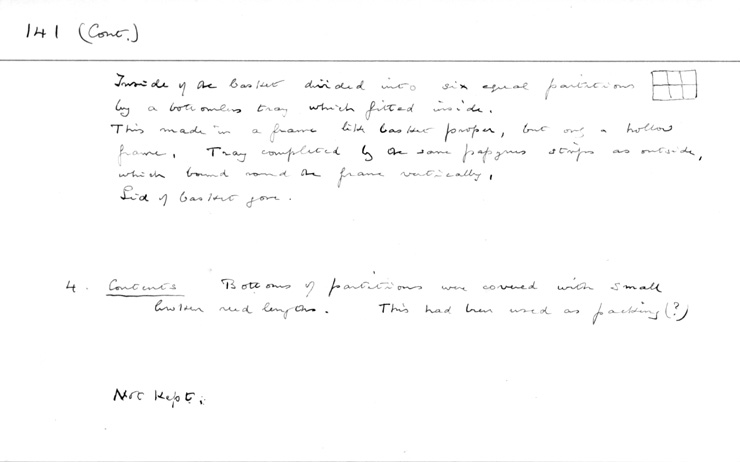 141 (Cont.)
Inside of the basket divided into six equal partitions
by a bottomless tray which fitted inside.
This made in a frame like basket proper, but only a hollow
frame. Tray completed by the same papyrus strips as outside,
which bound round the frame vertically.
Lid of basket gone.
4. Contents Bottoms of partitions were covered with small
broken reed lengths. This had been used as packing (?)
Not kept.